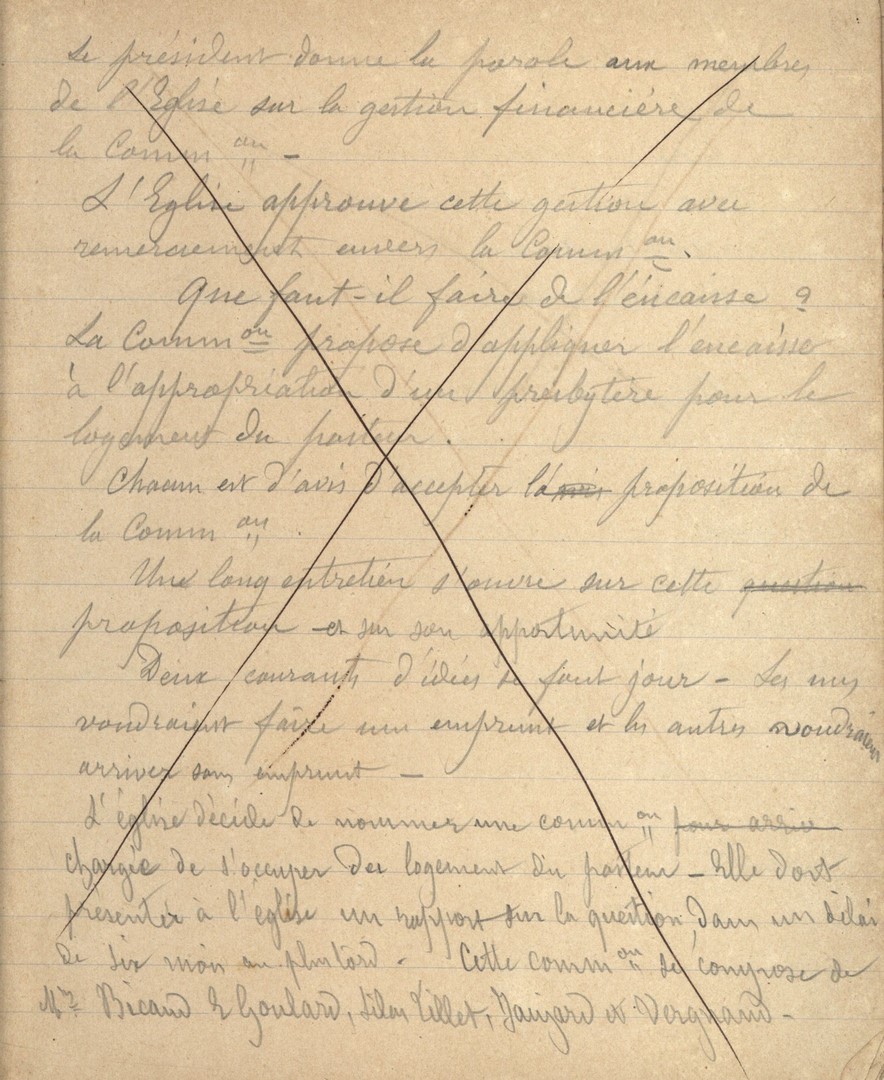 Le président donne la parole aux membres
de l'Eglise sur la gestion financière de
la Comm on –
L'Eglise approuve cette gestion avec
remerciement envers la Comm on.
Que faut-il faire de l'encaisse ?
La Comm on propose d'appliquer l'encaisse
à l'appropriation d'un presbytère pour le
logement du pasteur.
Chacun est d'avis d'accepter la proposition de
la Comm on
Une long entretien s'ouvre sur cette question
proposition et sur son opportunité
Deux courants d'idées se font jour – Les uns
voudraient faire un emprunt et les autres voudraient
arriver sans emprunt –
L'église décide de nommer une comm on pour arriver
chargée de s'occuper du logement du pasteur – Elle doit
présenter à l'église un rapport sur la question, dans un délai
de six mois au plustard. Cette comm on se compose de
Mrs Bicaud E Goulard, Silas Tillet, et Vergnaud –